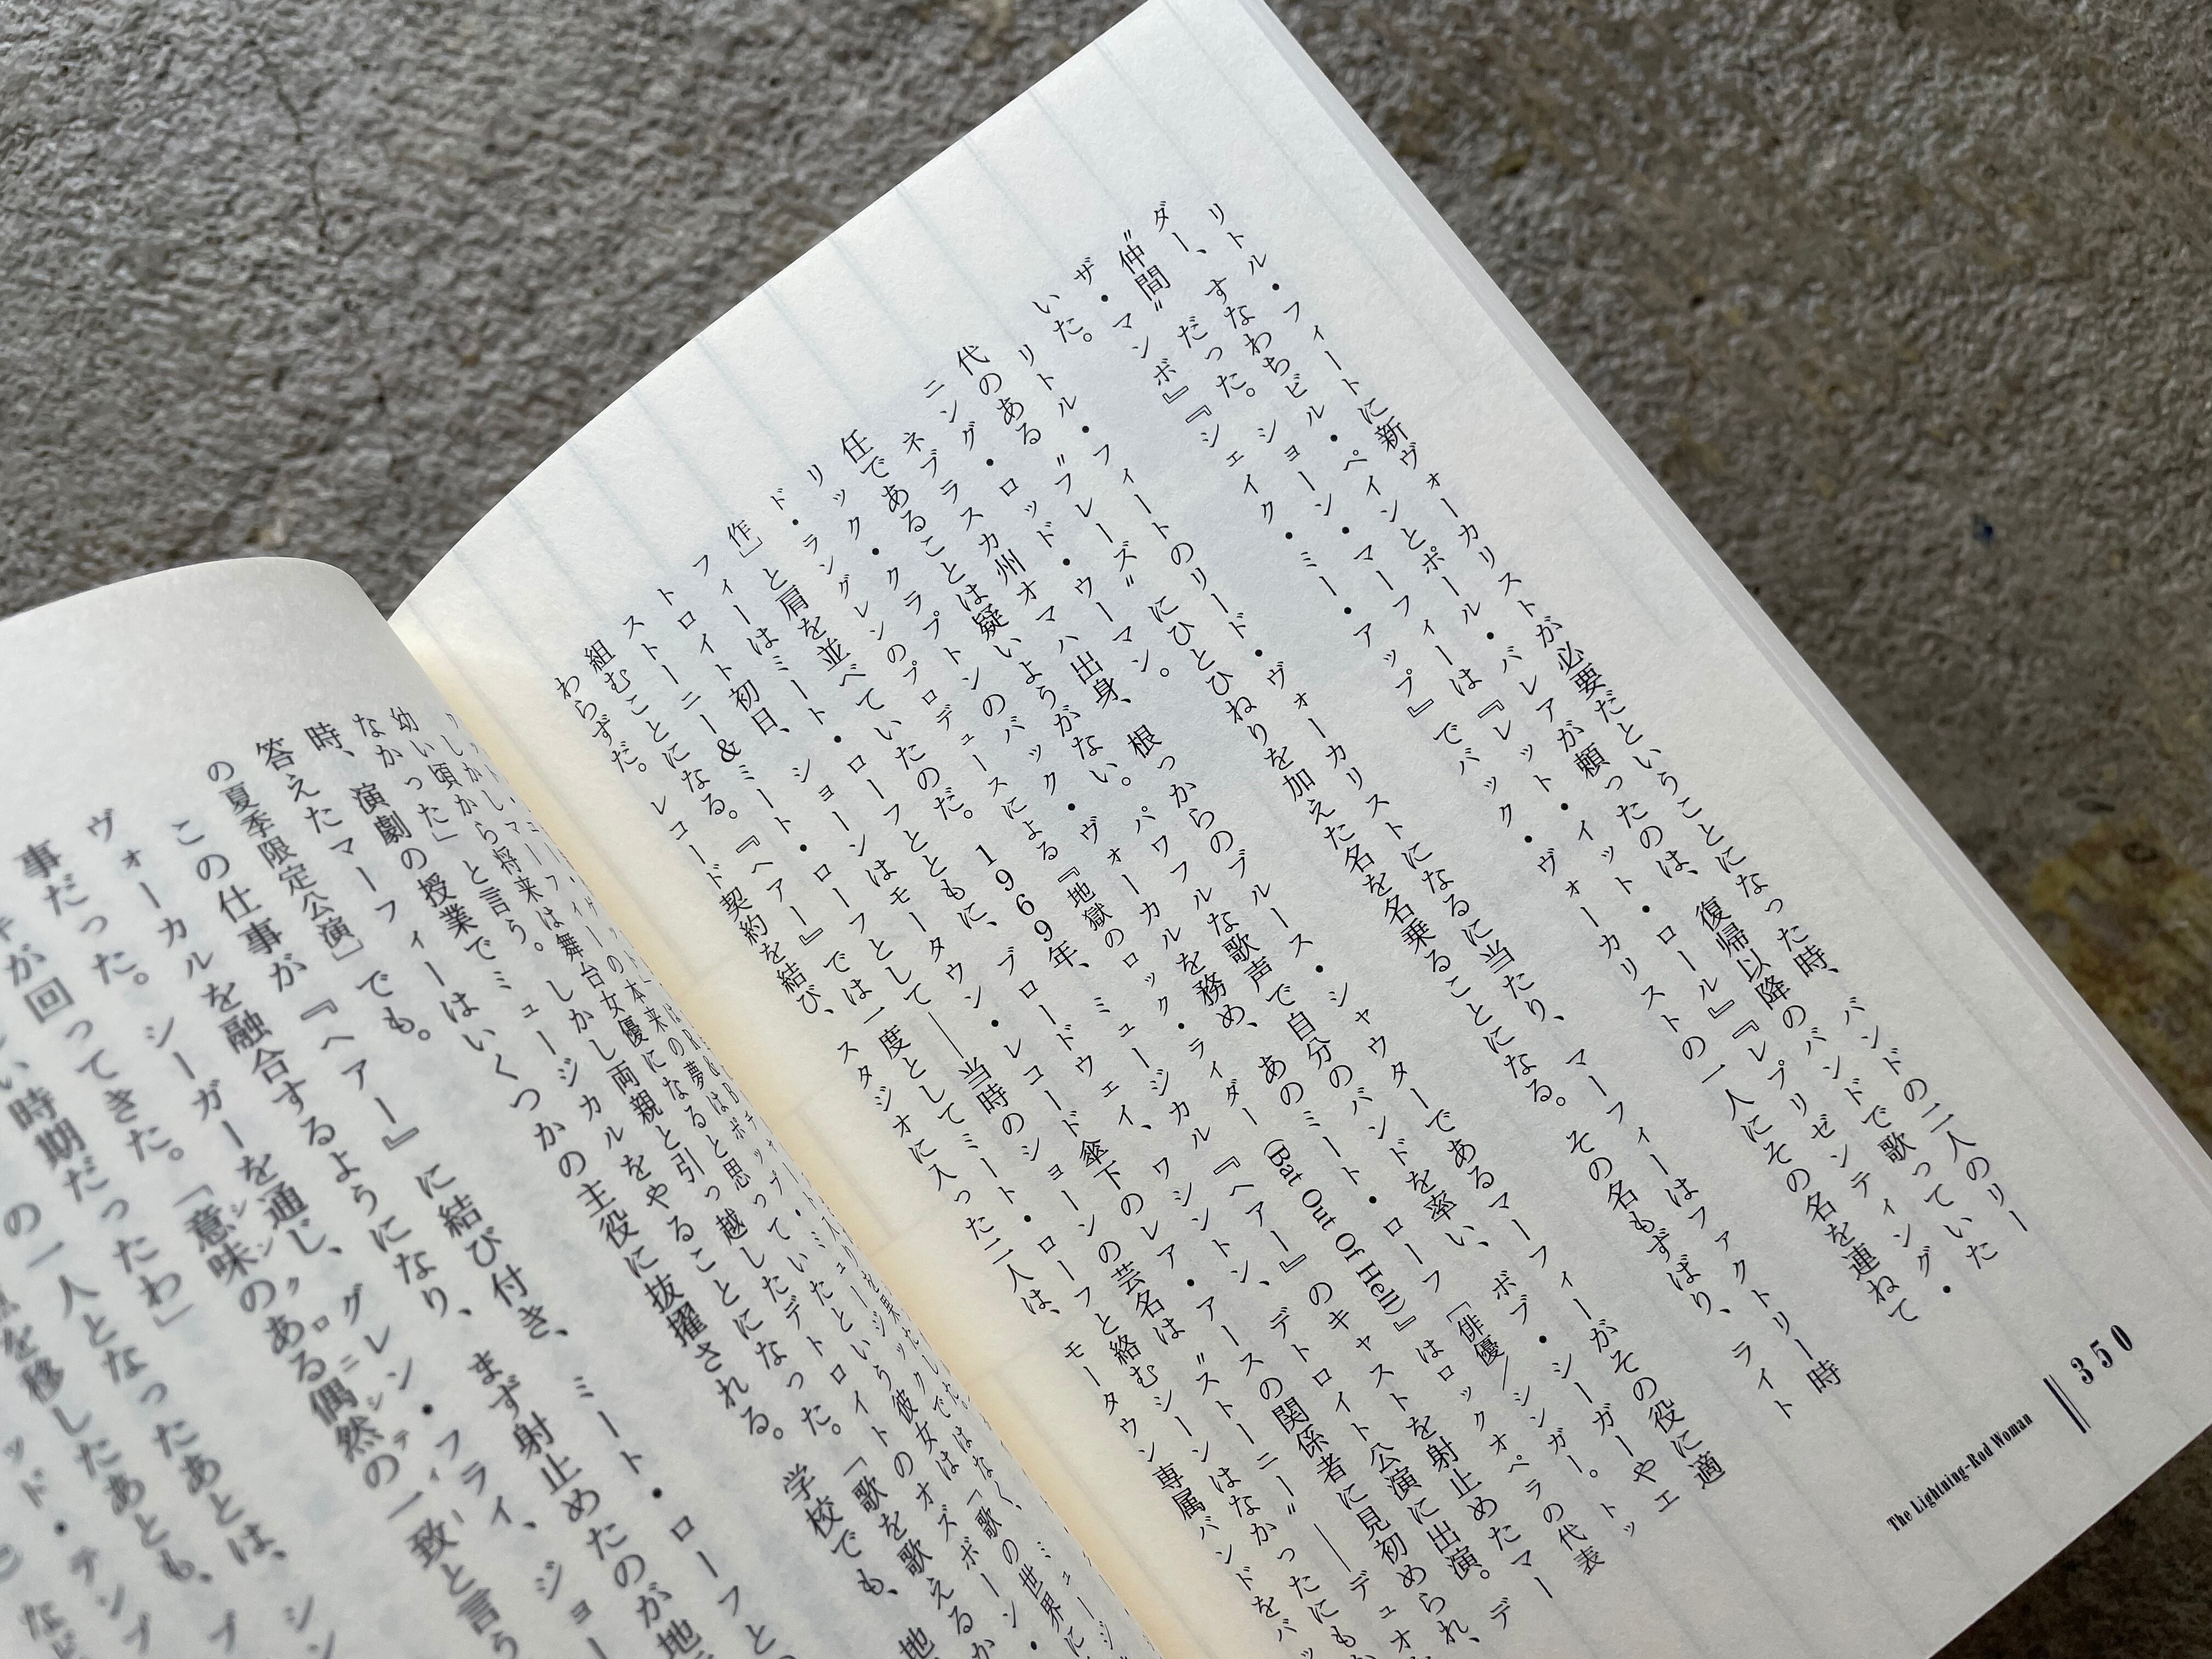 350
The Lightning-Rod Woman
リトル・フィートに新ヴォーカリストが必要だということになった時、バンドの二人のリー
ダー、すなわちビル・ペインとポール・バレアが頼ったのは、復帰以降のバンドで歌っていた
〝仲間〟だった。ショーン・マーフィーは『レット・イット・ロール』『レプリゼンティング・
ザ・マンボ』『シェイク・ミー・アップ』でバック・ヴォーカリストの一人にその名を連ねて
いた。
リトル・フィートのリード・ヴォーカリストになるに当たり、マーフィーはファクトリー時
代のある〝フレーズ〟にひとひねりを加えた名を名乗ることになる。その名もずばり、ライト
ニング・ロッド・ウーマン。
ネブラスカ州オマハ出身、根っからのブルース・シャウターであるマーフィーがその役に適
任であることは疑いようがない。パワフルな歌声で自分のバンドを率い、ボブ・シーガーやエ
リック・クラプトンのバック・ヴォーカルを務め、あのミート・ローフ［俳優／シンガー。トッ
ド・ラングレンのプロデュースによる『地獄のロック・ライダー (Bat Out Of Hell)』はロックオペラの代表
作］と肩を並べていたのだ。1969年、ミュージカル『ヘアー』のキャストを射止めたマー
フィーはミート・ローフとともに、ブロードウェイ、ワシントン、デトロイト公演に出演。デ
トロイト初日、ショーンはモータウン・レコード傘下のレア・アースの関係者に見初められ、
ストーニー＆ミート・ローフとして――当時のショーンの芸名は〝ストーニー〟――デュオ
組むことになる。『ヘアー』では一度としてミート・ローフと絡むシーンはなかったにもか
わらずだ。レコード契約を結び、スタジオに入った二人は、モータウン専属バンドをバッ
幼い頃から将来は舞台女優になると思っていたという彼女は「歌の世界に
なかった」と言う。しかし両親と引っ越したデトロイトのオズボーン・
時、演劇の授業でミュージカルをやることになった。「歌を歌えるか
答えたマーフィーはいくつかの主役に抜擢される。学校でも、地
の夏季限定公演］でも。
この仕事が『ヘアー』に結び付き、ミート・ローフと
ヴォーカルを融合するようになり、まず射止めたのが地
事だった。シーガーを通じ、グレン・フライ、ジョー
が回ってきた。「意味のある偶然の一致と言う
い時期だったわ」
の一人となったあとは、シン
を移したあとも、ブ
ッド・テンプ